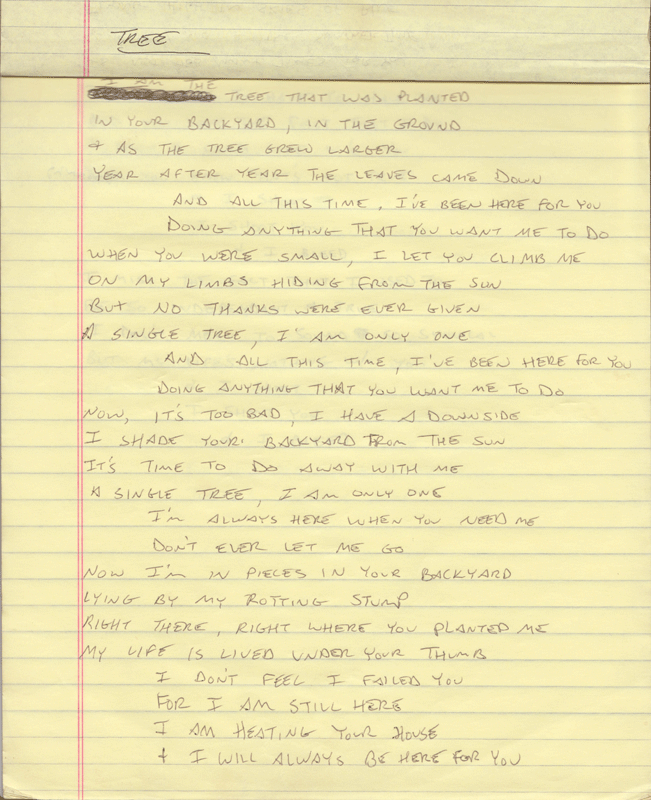 TREE
I AM THE
TREE THAT WAS PLANTED
IN YOUR BACKYARD, IN THE GROUND
& AS THE TREE GREW LARGER
YEAR AFTER YEAR THE LEAVES CAME DOWN
AND ALL THIS TIME, I'VE BEEN HERE FOR YOU
DOING ANYTHING THAT YOU WANT ME TO DO
WHEN YOU WERE SMALL, I LET YOU CLIMB ME
ON MY LIMBS HIDING FROM THE SUN
BUT NO THANKS WERE EVER GIVEN
A SINGLE TREE, I AM ONLY ONE
AND ALL THIS TIME, I'VE BEEN HERE FOR YOU
DOING ANYTHING THAT YOU WANT ME TO DO
NOW, IT'S TOO BAD, I HAVE A DOWNSIDE
I SHADE YOUR BACKYARD FROM THE SUN
IT'S TIME TO DO AWAY WITH ME
A SINGLE TREE, I AM ONLY ONE
I'M ALWAYS HERE WHEN YOU NEED ME
DON'T EVER LET ME GO
NOW I'M IN PIECES IN YOUR BACKYARD
LYING BY MY ROTTING STUMP
RIGHT THERE, RIGHT WHERE YOU PLANTED ME
MY LIFE IS LIVED UNDER YOUR THUMB
I DON'T FEEL I FAILED YOU
FOR I AM STILL HERE
I AM HEATING YOUR HOUSE
& I WILL ALWAYS BE HERE FOR YOU